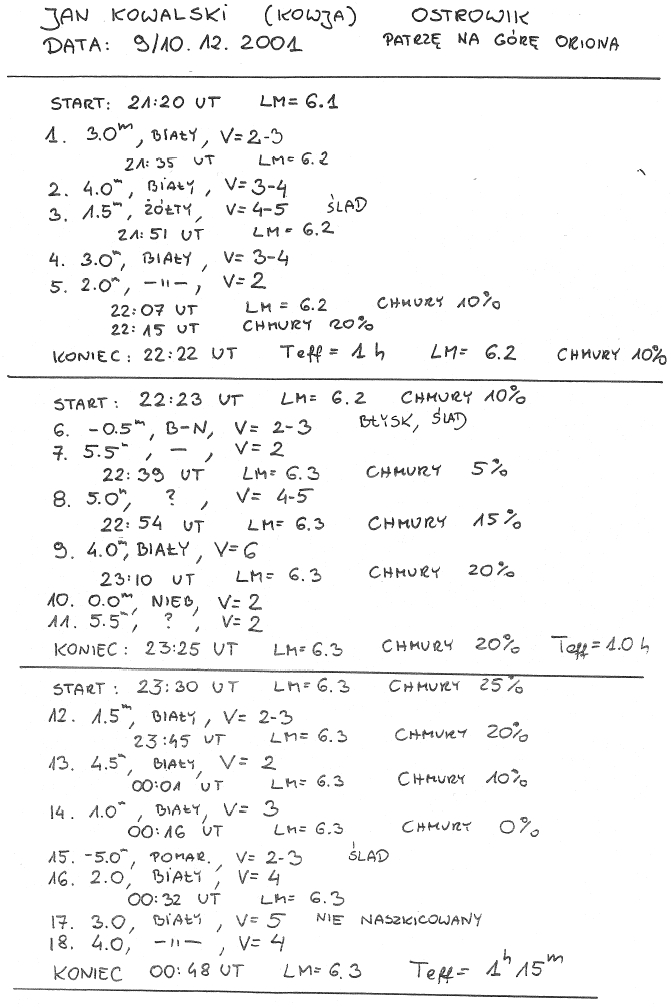 JAN KOWALSKI (KOWJA) OSTROWIK
DATA: 9/10.12.2001 PATRZĘ NA GÓRĘ ORIONA
START: 21:20 UT LM= 6.1
1. 3.0ᵐ, BIAŁY, V=2-3
21:35 UT LM= 6.2
2. 4.0ᵐ, BIAŁY, V=3-4
3. 1.5ᵐ, ŻÓŁTY, V=4-5 ŚLAD
21:51 UT LM= 6.2
4. 3.0ᵐ, BIAŁY, V=3-4
5. 2.0ᵐ, -"-, V=2
22:07 UT LM= 6.2 CHMURY 10%
22:15 UT CHMURY 20%
KONIEC: 22:22 UT Teff= 1 h LM= 6.2 CHMURY 10%
START: 22:23 UT LM= 6.2 CHMURY 10%
6. -0.5ᵐ, B-N, V= 2-3 BŁYSK, ŚLAD
7. 5.5ᵐ, -, V=2
22:39 UT LM= 6.3 CHMURY 5%
8. 5.0ᵐ, ?, V= 4-5
22:54 UT LM= 6.3 CHMURY 15%
9. 4.0ᵐ, BIAŁY, V=6
23:10 UT LM= 6.3 CHMURY 20%
10. 0.0ᵐ, NIEB, V=2
11. 5.5ᵐ, ?, V=2
KONIEC: 23:25 UT LM=6.3 CHMURY 20% Teff=1.0 h
START: 23:30 UT LM=6.3 CHMURY 25%
12. 1.5ᵐ, BIAŁY, V= 2-3
23:45 UT LM= 6.3 CHMURY 20%
13. 4.5ᵐ, BIAŁY, V= 2
00:01 UT LM= 6.3 CHMURY 10%
14. 1.0ᵐ, BIAŁY, V= 3
00:16 UT LM= 6.3 CHMURY 0%
15. -5.0ᵐ, POMAR., V= 2-3 ŚLAD
16. 2.0, BIAŁY, V= 4
00:32 UT LM= 6.3
17. 3.0, BIAŁY, V= 5 NIE NASZKICOWANY
18. 4.0, -"-, V= 4
KONIEC 00:48 UT LM= 6.3 Teff= 1ʰ 15ᵐ